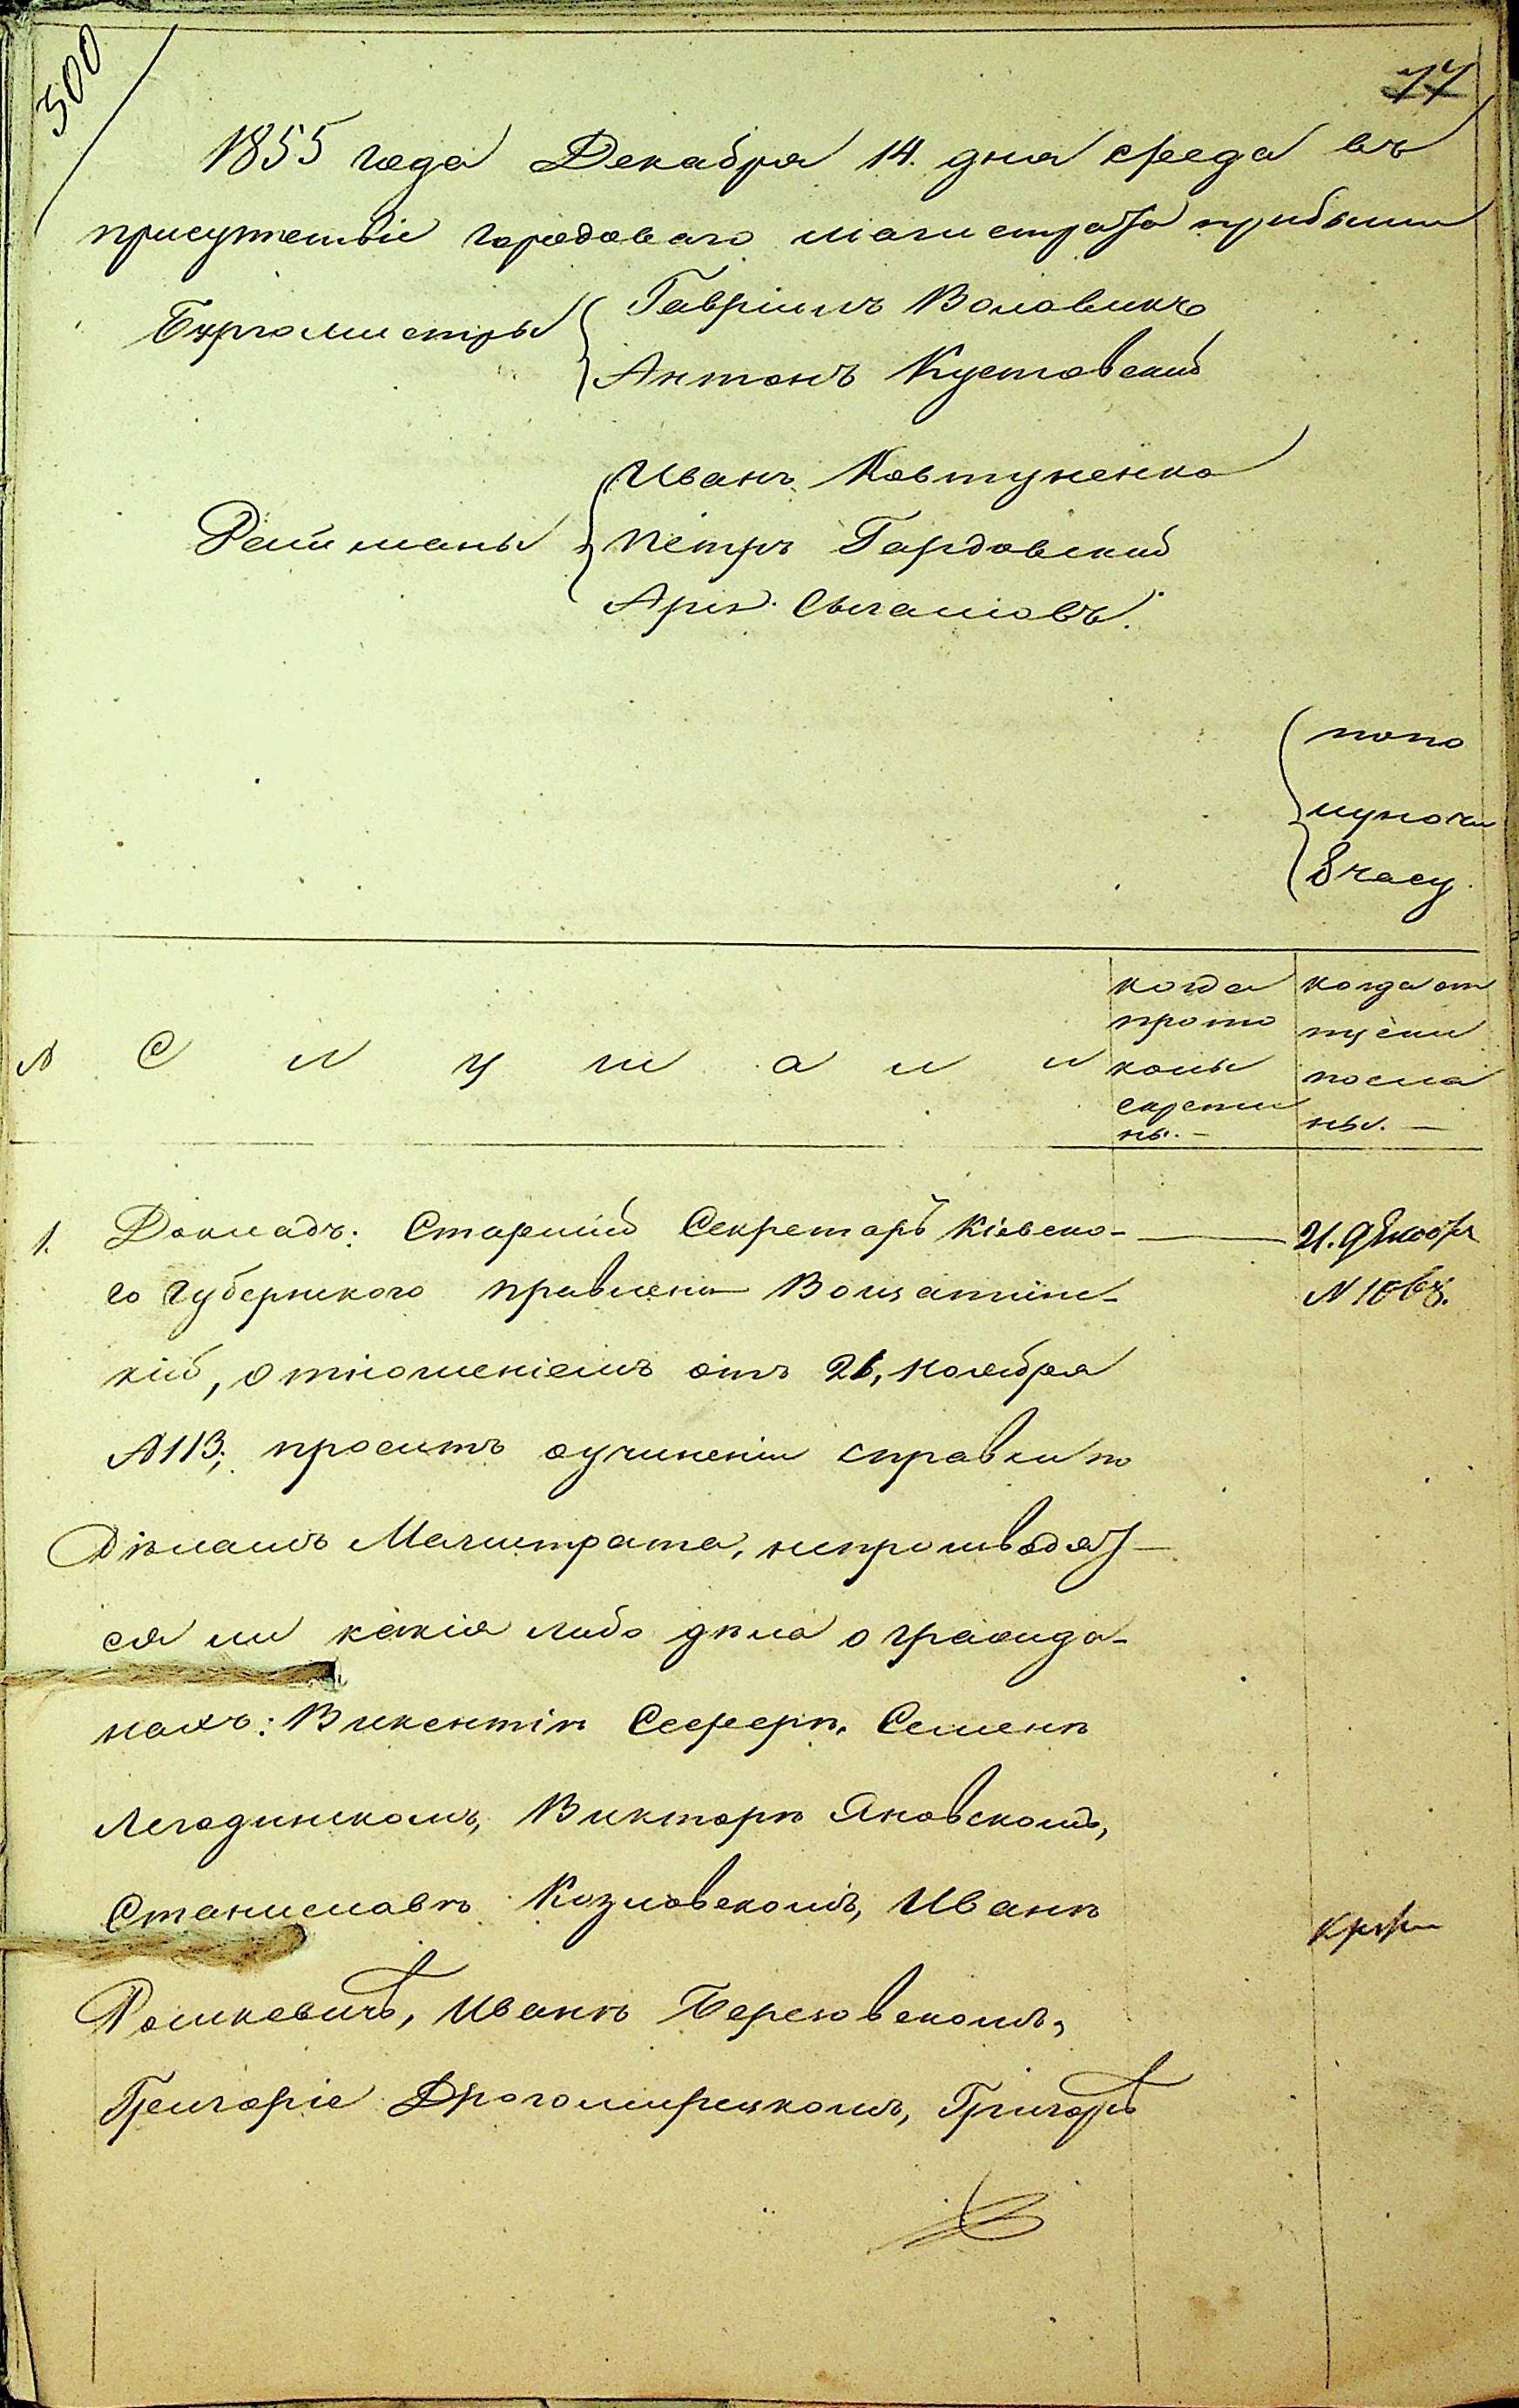 300
77
1855 года Декабря 14. дня среда въ
присутствіе городоваго магистрата прибыли
Бургомистры
Гавріилъ Воловикъ
Антонъ Кустовскій
Ратманы
Иванъ Ковтуненко
Петръ Гардовскій
пополуночи
8 часу
№ С л у ш а л и
когда
прото
колы
скрепле
ны. —
когда от
пуски
посла
ны. —
1. Докладъ: Старшій Секретарь Кіевско-
го Губернского правленія
кій, отношеніемъ отъ 26, ноября
№ 113; проситъ оучиненіи справки по
Дѣламъ Магистрата, непроизводят-
ся ли какія либо дѣла о гражда-
нахъ: Викентіѣ Сеферѣ, Семенѣ
Легодинскомъ, Викторѣ Яновскомъ,
Станиславѣ Козловскомъ, Иванѣ
Рашкевичѣ, Иванѣ Березовскомъ,
Григоріе Дрогомирецкомъ, Григорѣ
21. Декабр